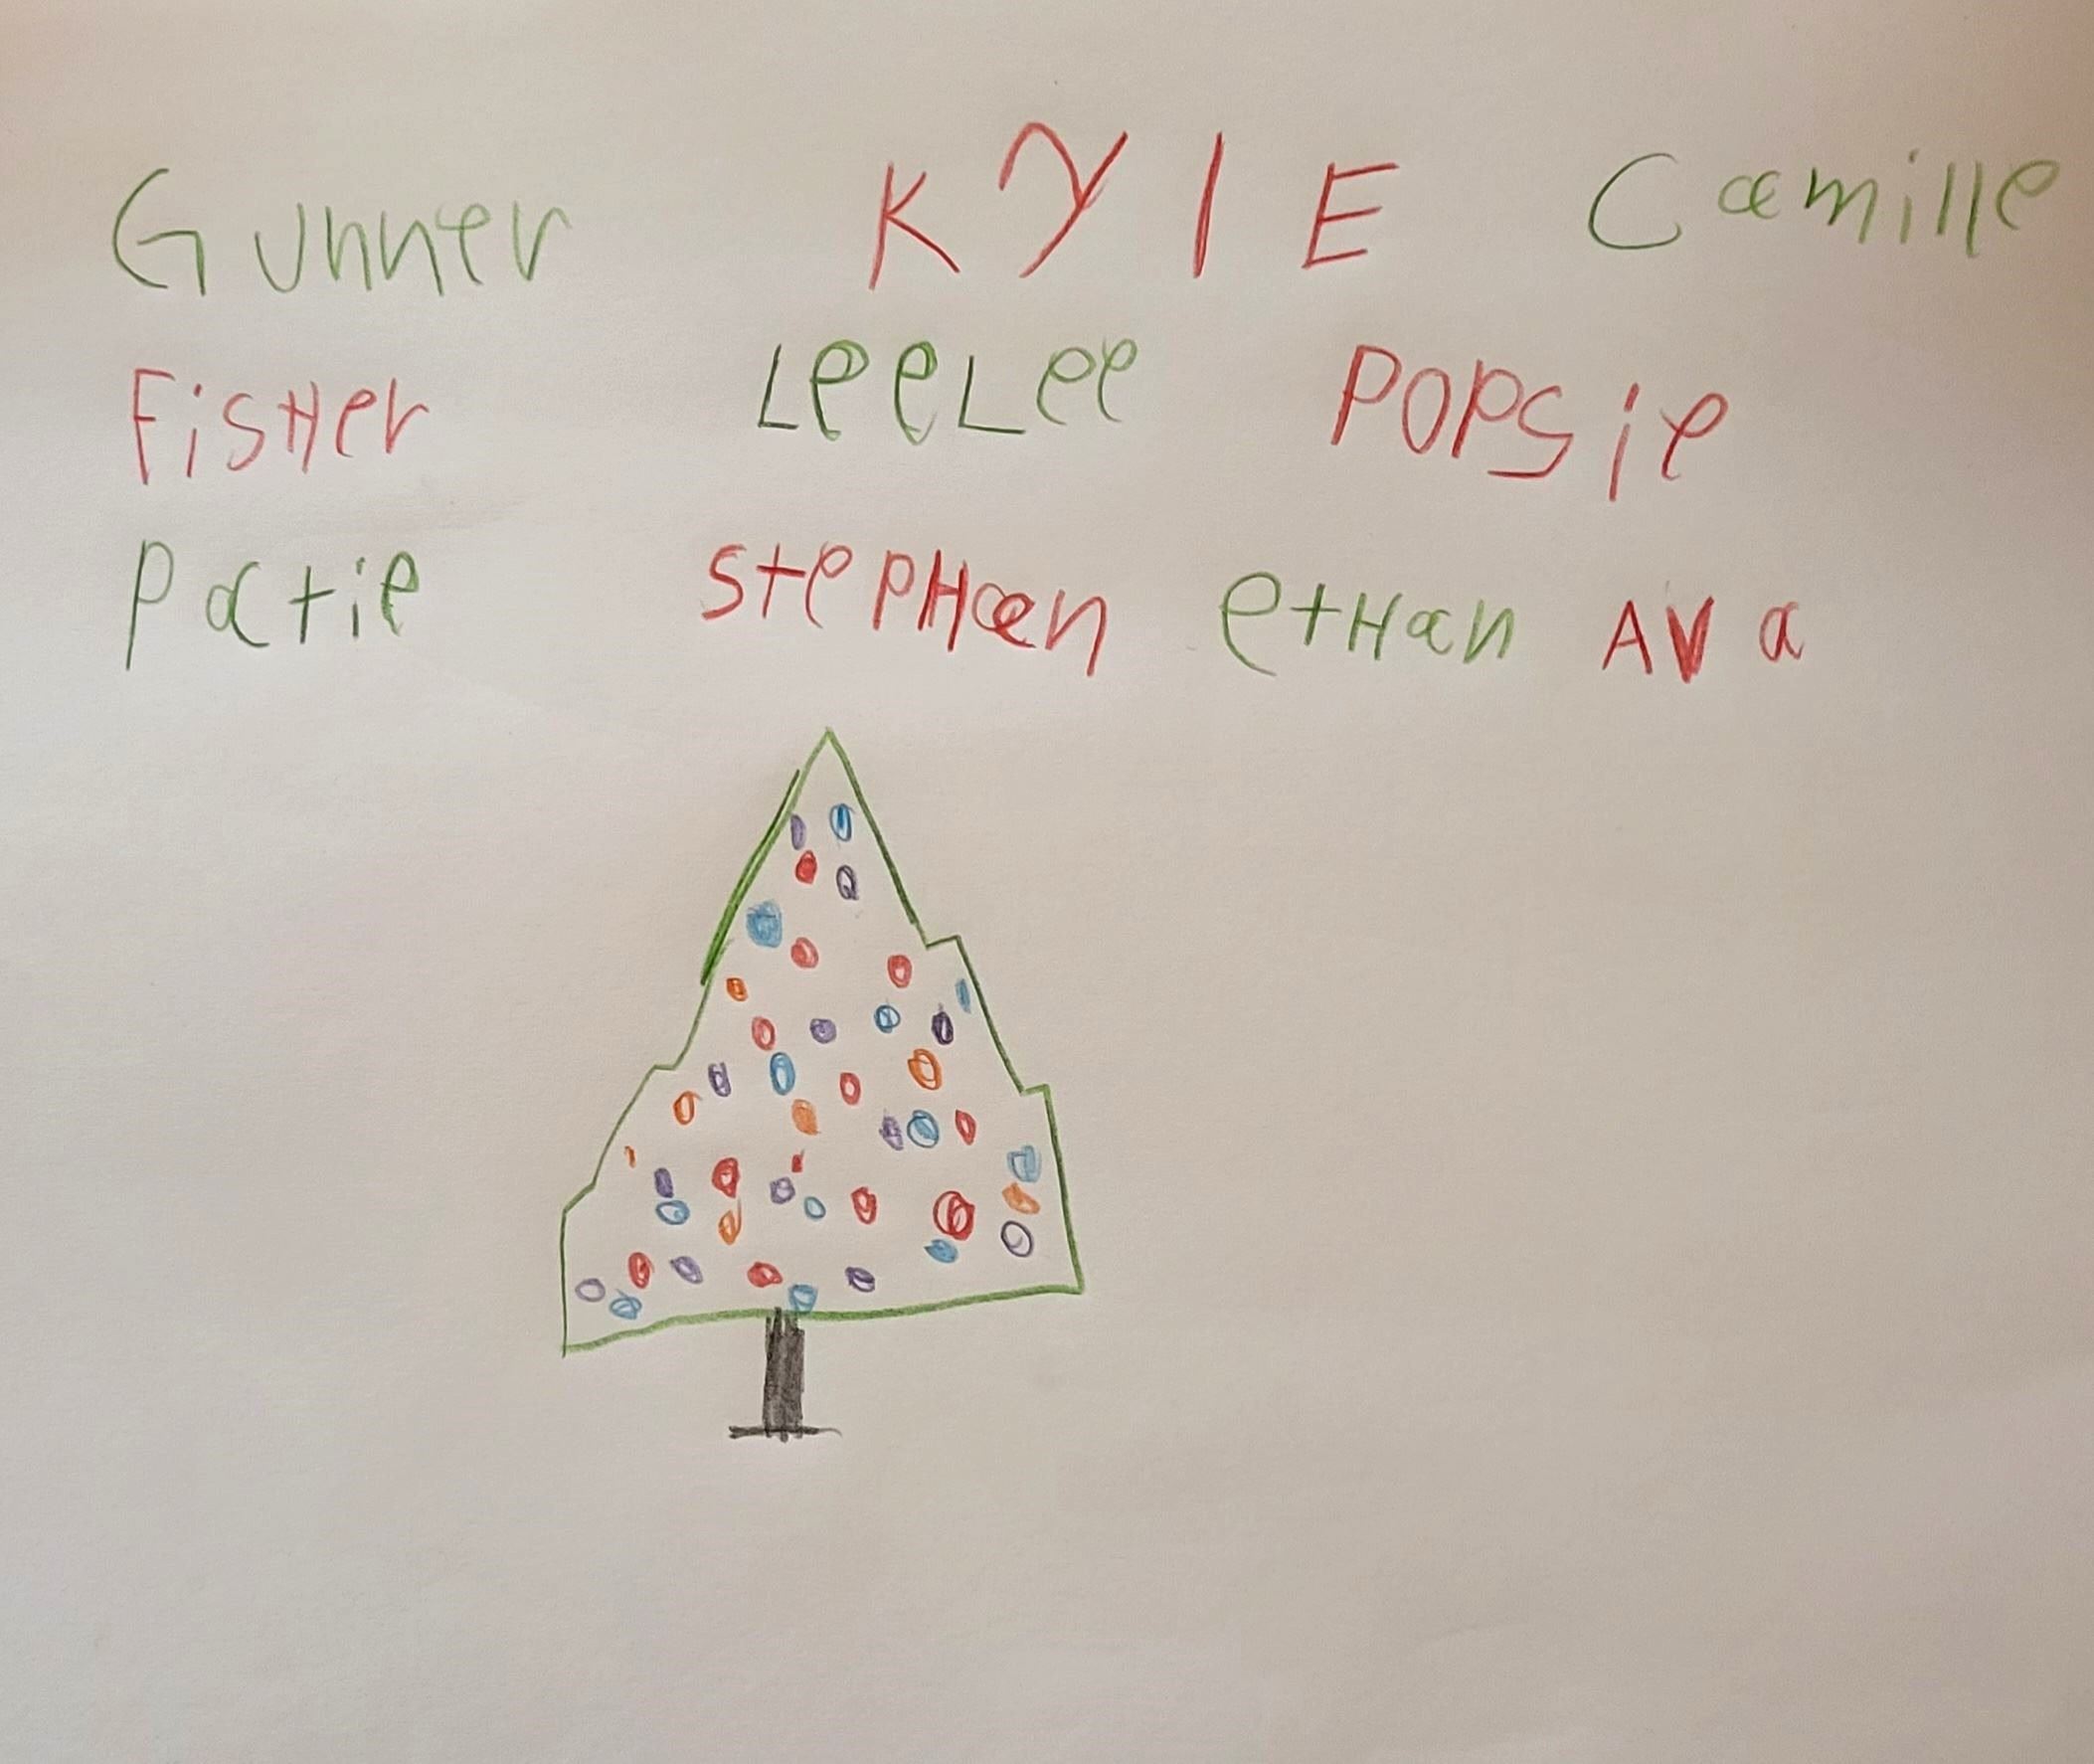 Gunner KYlE Camille
FisHer LeeLee POPSie
Patie StepHan etHan AVa